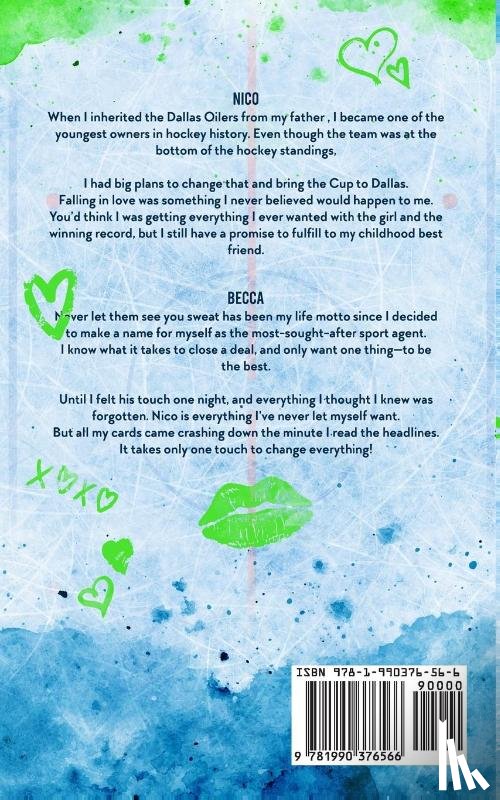 NICO
When I inherited the Dallas Oilers from my father , I became one of the
youngest owners in hockey history. Even though the team was at the
bottom of the hockey standings,
I had big plans to change that and bring the Cup to Dallas.
Falling in love was something I never believed would happen to me.
You'd think I was getting everything I ever wanted with the girl and the
winning record, but I still have a promise to fulfill to my childhood best
friend.
BECCA
Never let them see you sweat has been my life motto since I decided
to make a name for myself as the most-sought-after sport agent.
I know what it takes to close a deal, and only want one thing—to be
the best.
Until I felt his touch one night, and everything I thought I knew was
forgotten. Nico is everything I've never let myself want.
But all my cards came crashing down the minute I read the headlines.
It takes only one touch to change everything!
XOXO
ISBN 978-1-990376-56-6
90000
9 781990 376566